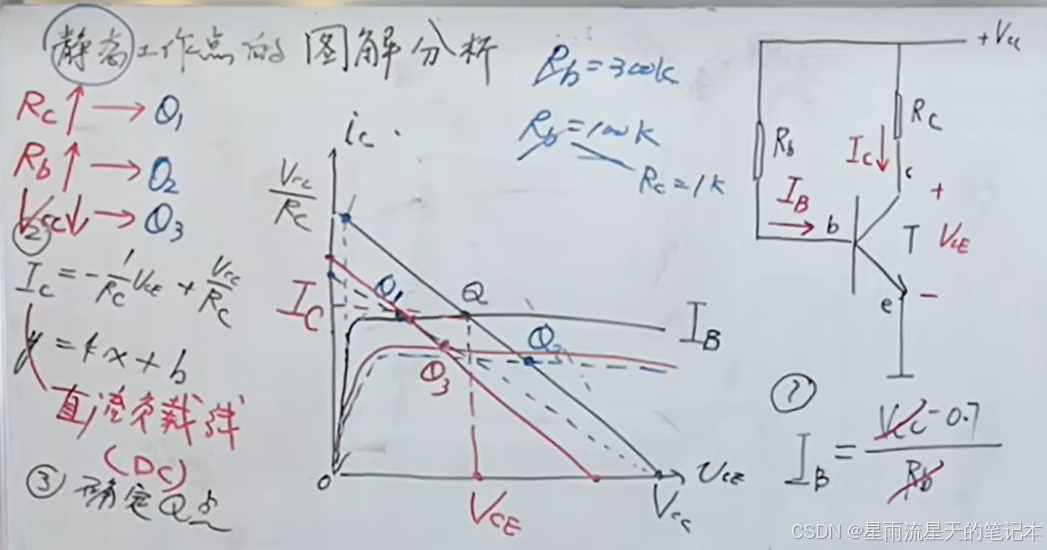 静态工作点的图解分析
Rc↑→Q1
Rb↑→Q2
Vcc↓→Q3
②
Ic = -1/Rc VCE + Vcc/Rc
y = kx + b
直流负载线
(DC)
③ 确定Q点
Rb=300k
Rb=100k
Rc=1k
ic
Vcc/Rc
IC
Q1
Q
Q2
Q3
IB
0
VCE
Vcc
υCE
+Vcc
Rb
Rc
Ic
c
+
IB
b
T
VCE
e
-
①
IB = Vcc-0.7/Rb
CSDN @星雨流星天的笔记本